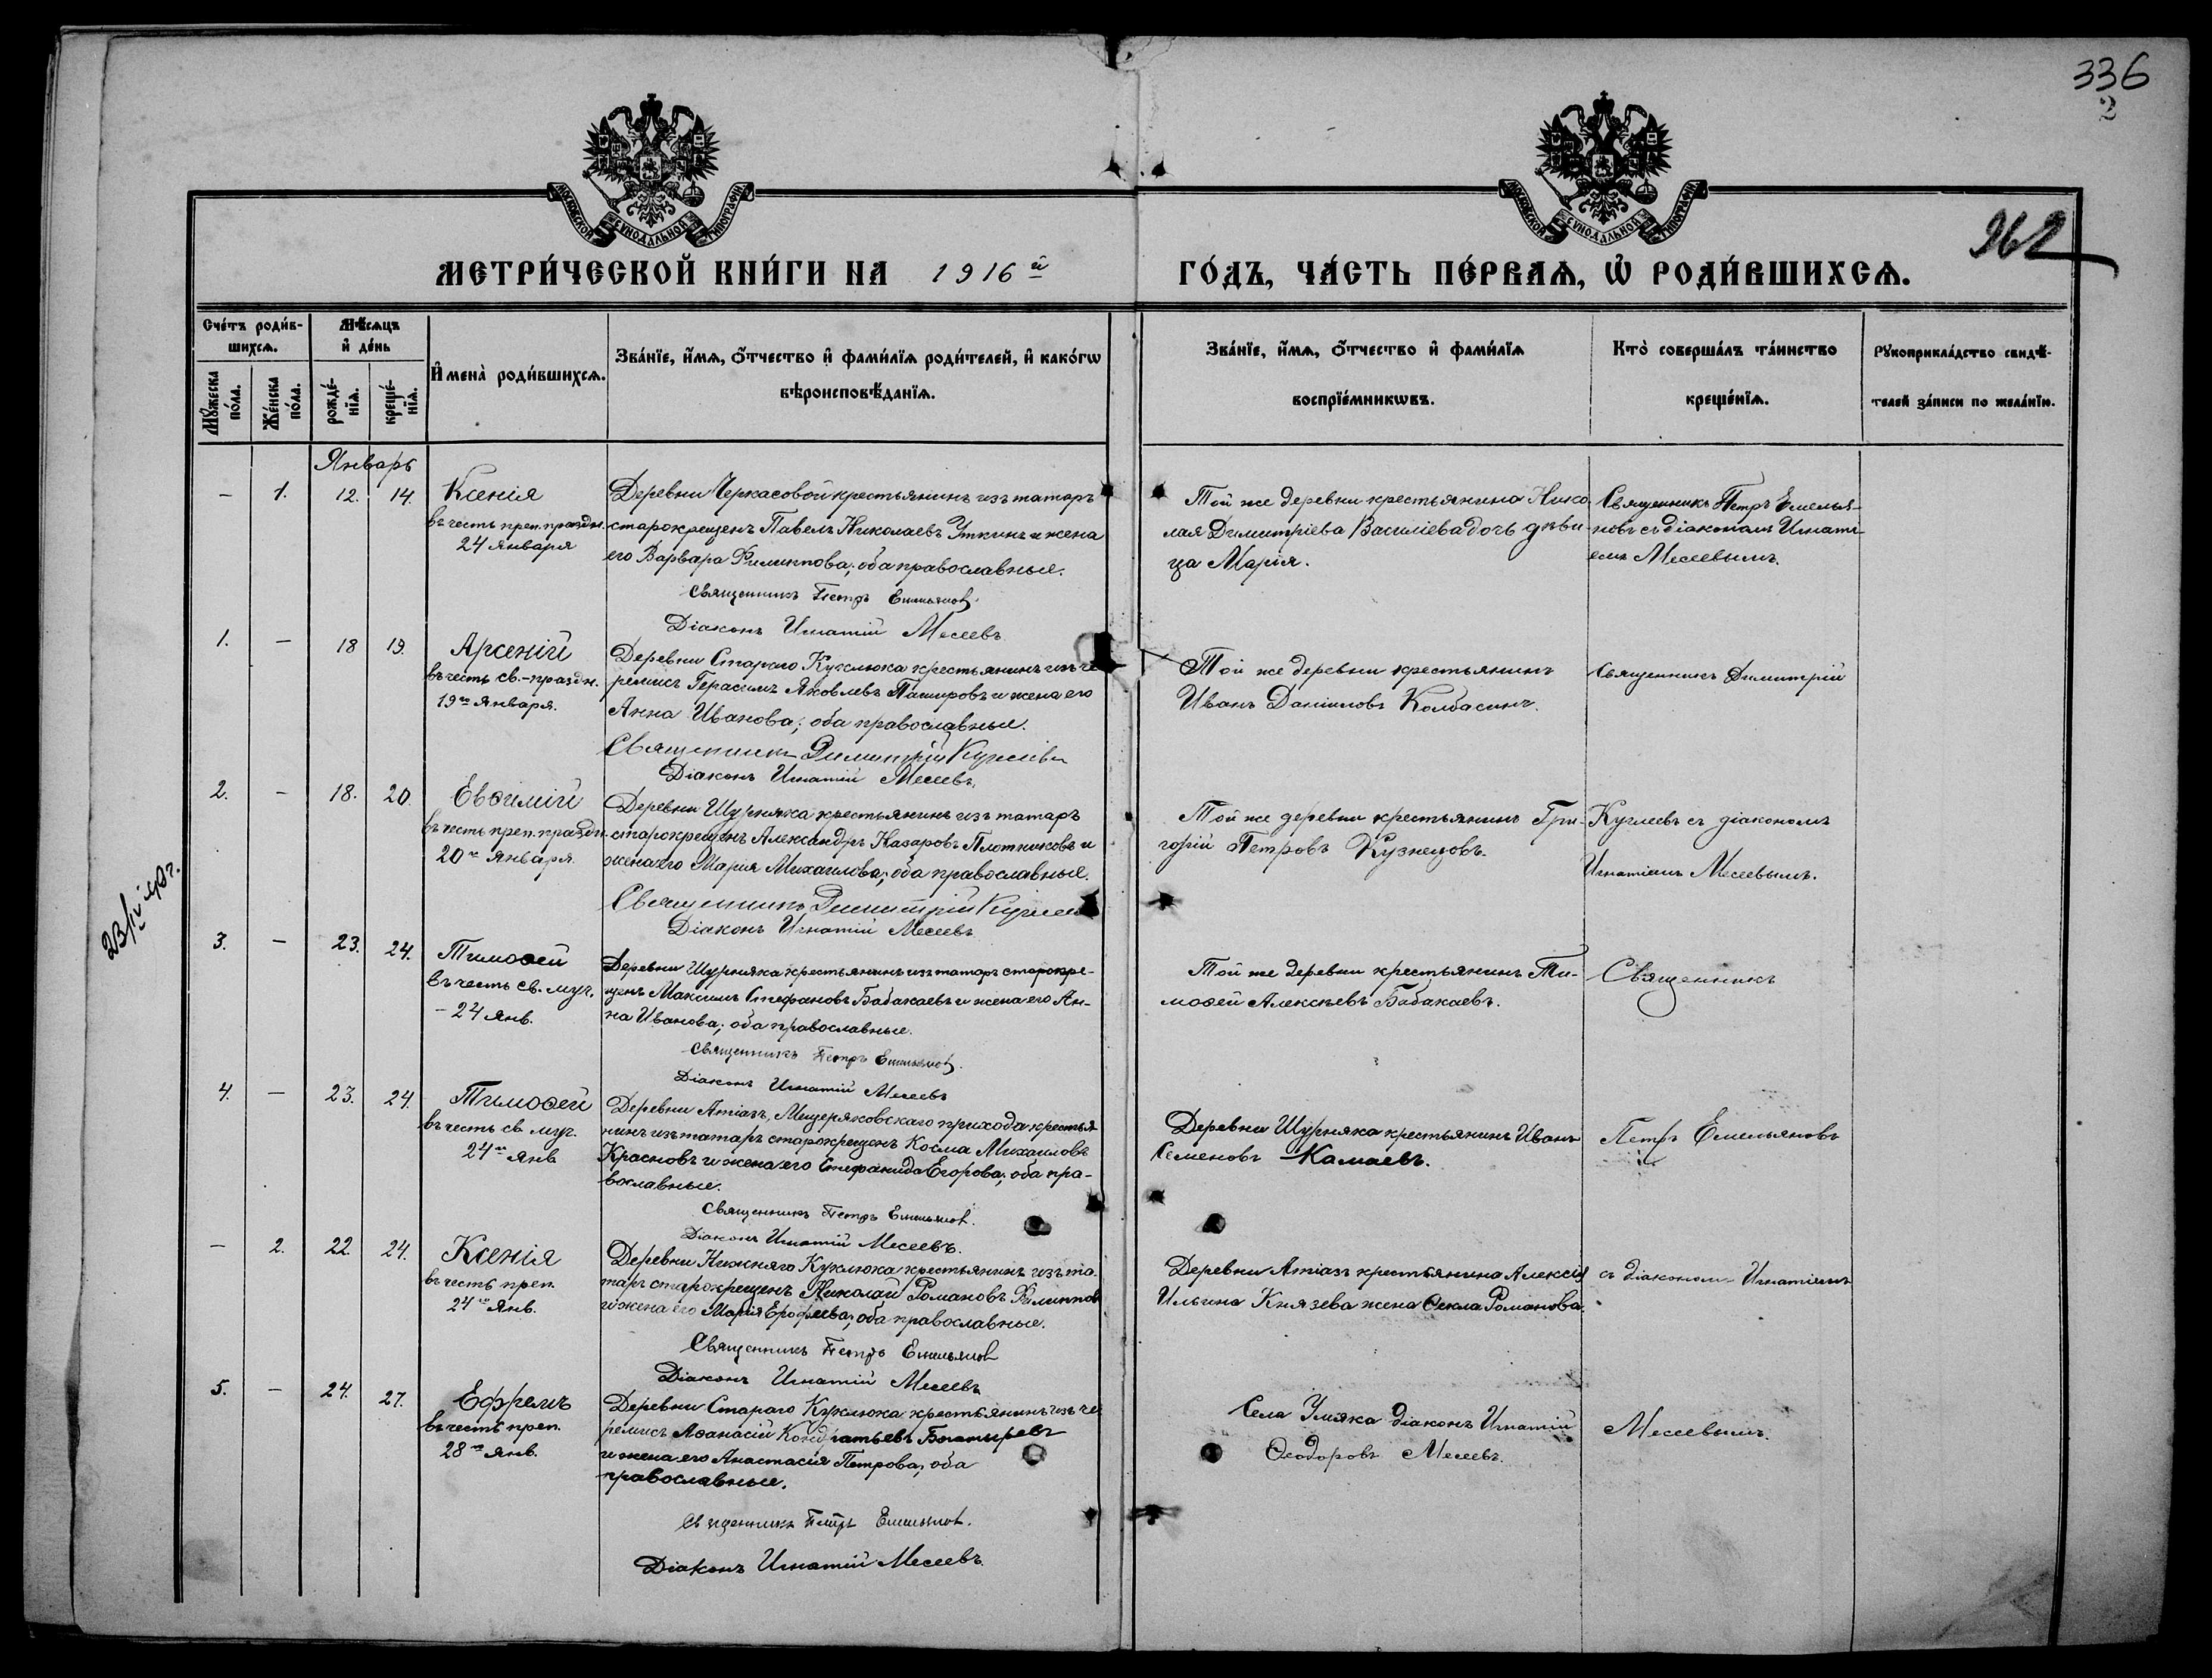 336
2
МОСКОВСКОЙ СѴНОДАЛЬНОЙ ТИПОГРАФІИ
МОСКОВСКОЙ СѴНОДАЛЬНОЙ ТИПОГРАФІИ
МЕТРИ́ЧЕСКОЙ КНИ́ГИ НА 1916й
ГО́ДЪ, ЧА́СТЬ ПЕ́РВАѦ, Ѡ҆ РОДИ́ВШИХСѦ.
962
Сче́тъ роди́в-
шихсѧ.
Мꙋ́жеска
по́ла.
Же́нска
по́ла.
Мѣ́сѧцъ
и҆ де́нь
рожде́-
нїѧ.
креще́-
нїѧ.
И҆мена̀ роди́вшихсѧ.
Зва́нїе, и҆́мѧ, ѻ҆́тчество и҆ фами́лїѧ роди́телей, и҆ како́гѡ
вѣроисповѣ́данїѧ.
Зва́нїе, и҆́мѧ, ѻ҆́тчество и҆ фами́лїѧ
воспрїе́мникѡвъ.
Кто̀ соверша́лъ та́инство
креще́нїѧ.
Рꙋкоприкла́дство свидѣ́-
телей за́писи по жела́нїю.
Январь
— 1. 12. 14.
Ксенія
въ честь преп. праздн.
24 января
Деревни Черкасовой крестьянинъ изъ татаръ
старокрещенъ Павелъ Николаевъ Уткинъ и жена
его Варвара Филиппова; оба православные.
Священникъ Петръ Емельянов.
Діаконъ Игнатій Месеевъ
Той же деревни крестьянина Нико-
лая Димитріева Василіева дочь дѣви-
ца Марія.
Священникъ Петръ Емелья-
новъ съ діакономъ Игнаті-
емъ Месеевымъ.
1. — 18 19.
Арсеній
въ честь св. праздн.
19го января.
Деревни Стараго Куклюка крестьянинъ изъ че-
ремисъ Герасимъ Яковлевъ Пашировъ и жена его
Анна Иванова; оба православные.
Священникъ Димитрій Куглеевъ
Діаконъ Игнатій Месеевъ.
Той же деревни крестьянинъ
Иванъ Даніиловъ Колбасинъ.
Священникъ Димитрій
2. — 18. 20.
Евѳимій
въ честь преп. праздн.
20го января.
Деревни Шурняка крестьянинъ изъ татаръ
старокрещенъ Александръ Назаровъ Плотниковъ и
жена его Марія Михаилова; оба православные.
Священникъ Димитрій Куглеев
Діаконъ Игнатій Месеевъ
Той же деревни крестьянинъ Гри-
горій Петровъ Кузнецовъ.
Куглеевъ съ діакономъ
Игнатіемъ Месеевымъ.
3. — 23. 24.
Тимоѳей
въ честь св. муч.
24 янв.
Деревни Шурняка крестьянинъ изъ татаръ старокре-
щенъ Максимъ Стефановъ Бабакаевъ и жена его Ан-
на Иванова; оба православные.
Священникъ Петръ Емельянов.
Діаконъ Игнатій Месеевъ
Той же деревни крестьянинъ Ти-
моѳей Алексѣевъ Бабакаевъ.
Священникъ
4. — 23. 24.
Тимоѳей
въ честь св. муч.
24го янв.
Деревни Атіазъ, Мещеряковскаго прихода крестья
нинъ изъ татаръ старокрещенъ Косма Михаиловъ
Красновъ и жена его Стефанида Егорова; оба пра-
вославные.
Священникъ Петръ Емельянов.
Діаконъ Игнатій Месеевъ.
Деревни Шурняка крестьянинъ Иванъ
Семеновъ Камаевъ.
Петръ Емельяновъ
— 2. 22. 24.
Ксенія
въ честь преп.
24го янв.
Деревни Нижняго Куклюка крестьянинъ изъ та-
таръ старокрещенъ Николай Романовъ Филиппов
и жена его Марія Ерофеева; оба православные.
Священникъ Петръ Емельянов
Діаконъ Игнатій Месеевъ
Деревни Атіазъ крестьянина Алексія
Ильина Князева жена Ѳекла Романова.
съ діакономъ Игнатіемъ
5. — 24. 27.
Ефремъ
въ честь преп.
28го янв.
Деревни Стараго Куклюка крестьянинъ изъ че
ремисъ Аѳанасій Кондратьевъ Богатыревъ
и жена его Анастасія Петрова; оба
православные.
Священникъ Петръ Емельянов.
Діаконъ Игнатій Месеевъ.
Села Умяка діаконъ Игнатій
Ѳеодоровъ Месеевъ.
Месеевымъ.